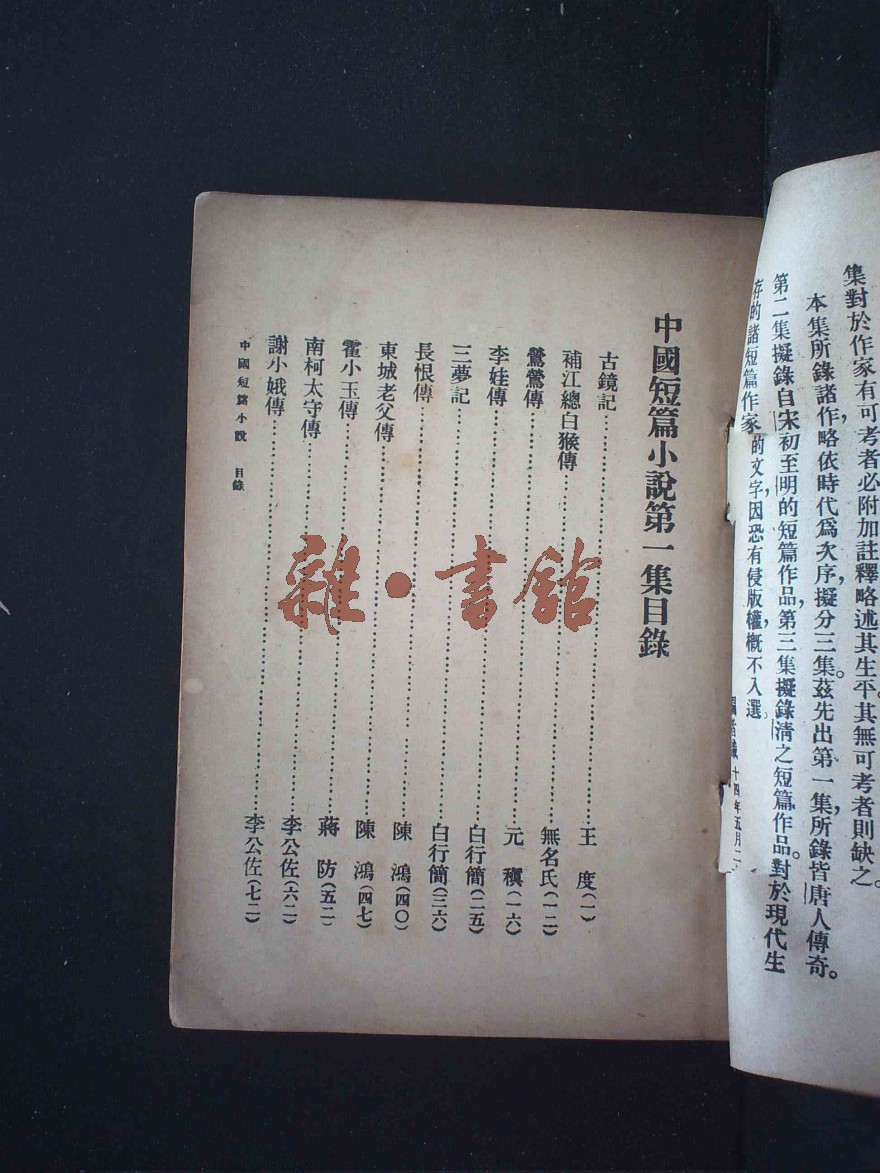 集對於作家有可考者必附加註釋略述其生平。其無可考者則缺之。
本集所錄諸作略依時代爲次序，擬分三集茲先出第一集，所錄皆唐人傳奇。
第二集擬錄自宋初至明的短篇作品，第三集擬錄清之短篇作品。對於現代生
存的諸短篇作家的文字，因恐有侵版權，概不入選。
十四年五月二
中國短篇小說第一集目錄
古鏡記……王　度(一)
補江總白猴傳……無名氏(一二)
鶯鶯傳……元　稹(一六)
李娃傳……白行簡(二五)
三夢記……白行簡(三六)
長恨傳……陳　鴻(四〇)
東城老父傳……陳　鴻(四七)
霍小玉傳……蔣　防(五二)
南柯太守傳……李公佐(六二)
謝小娥傳……李公佐(七二)
中國短篇小說　目錄
雜·書館